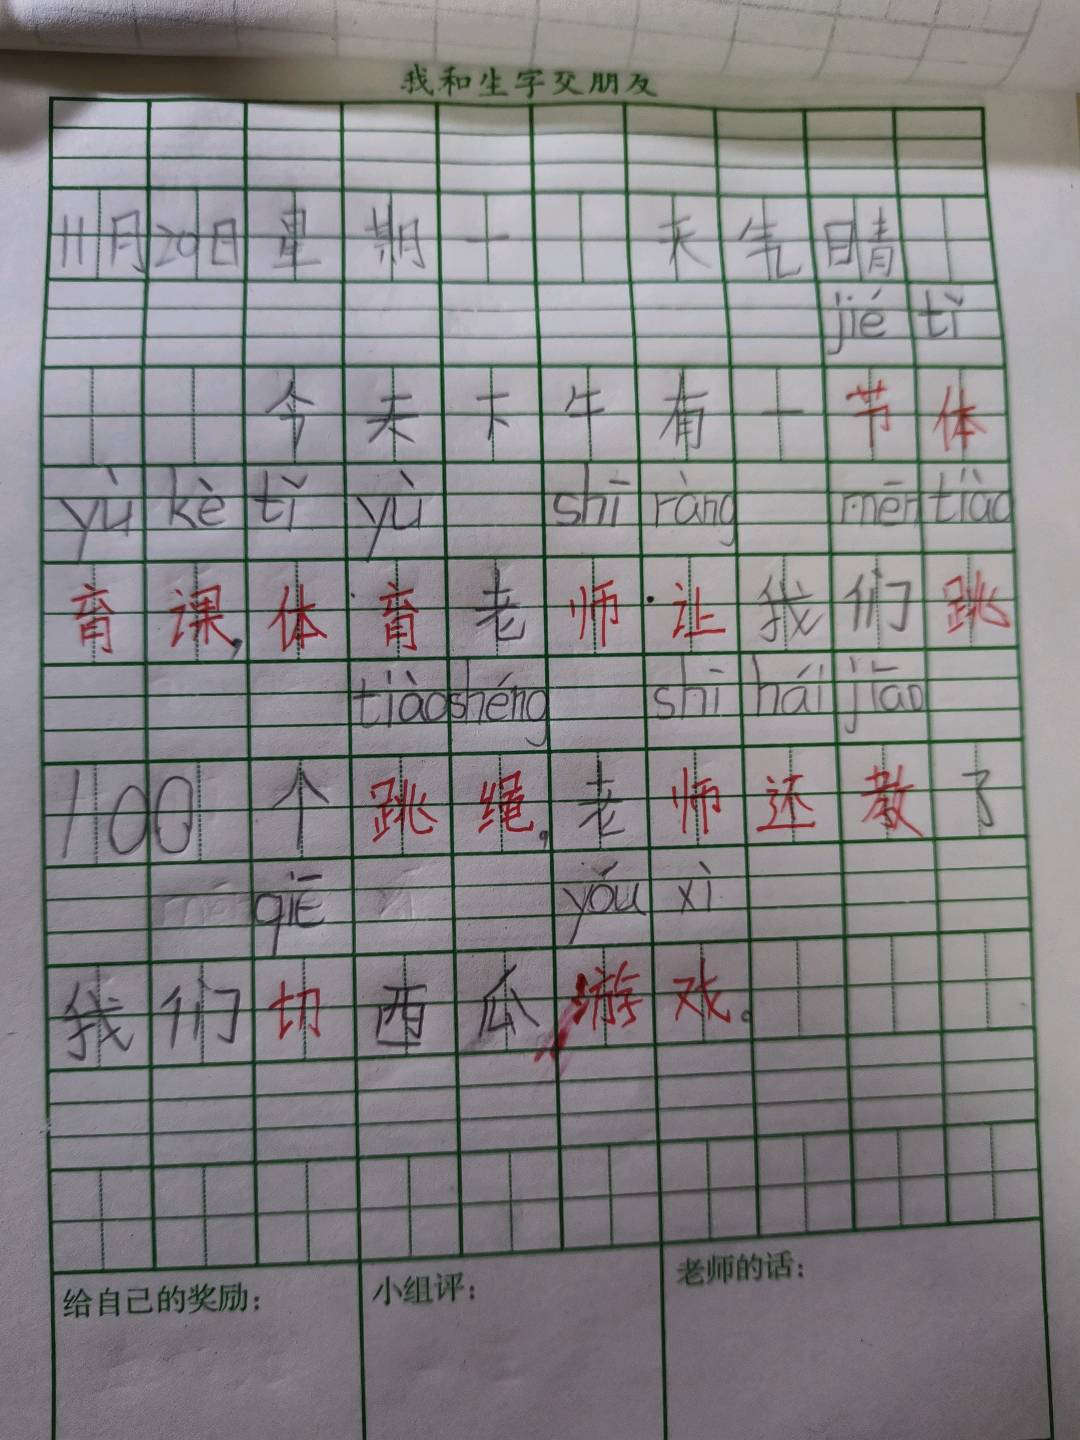 我和生字交朋友
11月20日星期一 天气晴
jié tǐ
今天下午有一节体
yù kè tǐ yù shī ràng mēn tiào
育课,体育老师让我们跳
tiào shéng shī hái jiāo
100个跳绳,老师还教了
qiē yǒu xì
我们切西瓜游戏。
给自己的奖励:
小组评:
老师的话: